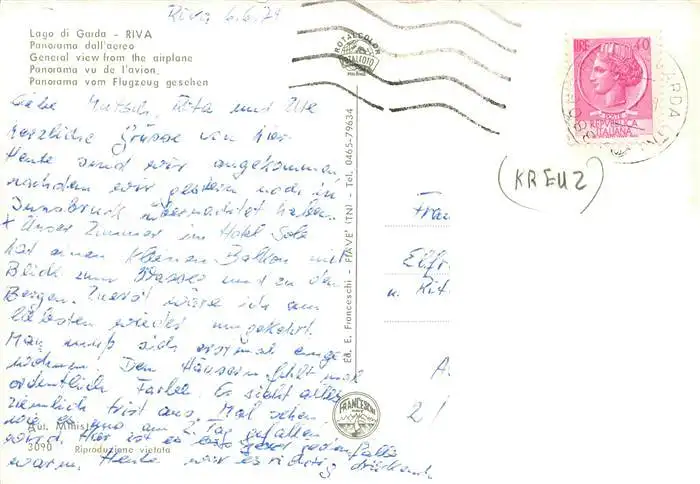 Riva 6.6.74
Lago di Garda - RIVA
Panorama dall'aereo
General view from the airplane
Panorama vu de l'avion
Panorama vom Flugzeug gesehen
Liebe Mutsch, Rita und Ute
herzliche Grüsse von hier
Heute sind wir angekommen,
nachdem wir gestern noch in
Innsbruck übernachtet haben.
x Unser Zimmer im Hotel Sole
hat einen kleinen Balkon mit
Blick zum Wasser und zu den
Bergen. Zuerst wäre ich am
liebsten wieder umgekehrt.
Man muß sich erstmal einge
wöhnen. Den Häusern fehlt mal
ordentlich Farbe. Es sieht alles
ziemlich trist aus. Mal sehen
wie es uns am 2. Tag gefallen
wird. Hier ist es jedenfalls
warm. Heute war es richtig drückend
Aut. Minist
3090 Riproduzione vietata
ROTALCOLOR
ROTALFOTO
MILANO
Ed. E. Franceschi - FIAVE' (TN) - Tel. 0465-79634
FRANCESCHI
LIRE 40
POSTE
REPVBBLICA
ITALIANA
GARDA (TN)
(KREUZ)
Frau
Elfr
u. Rit
A
2 /